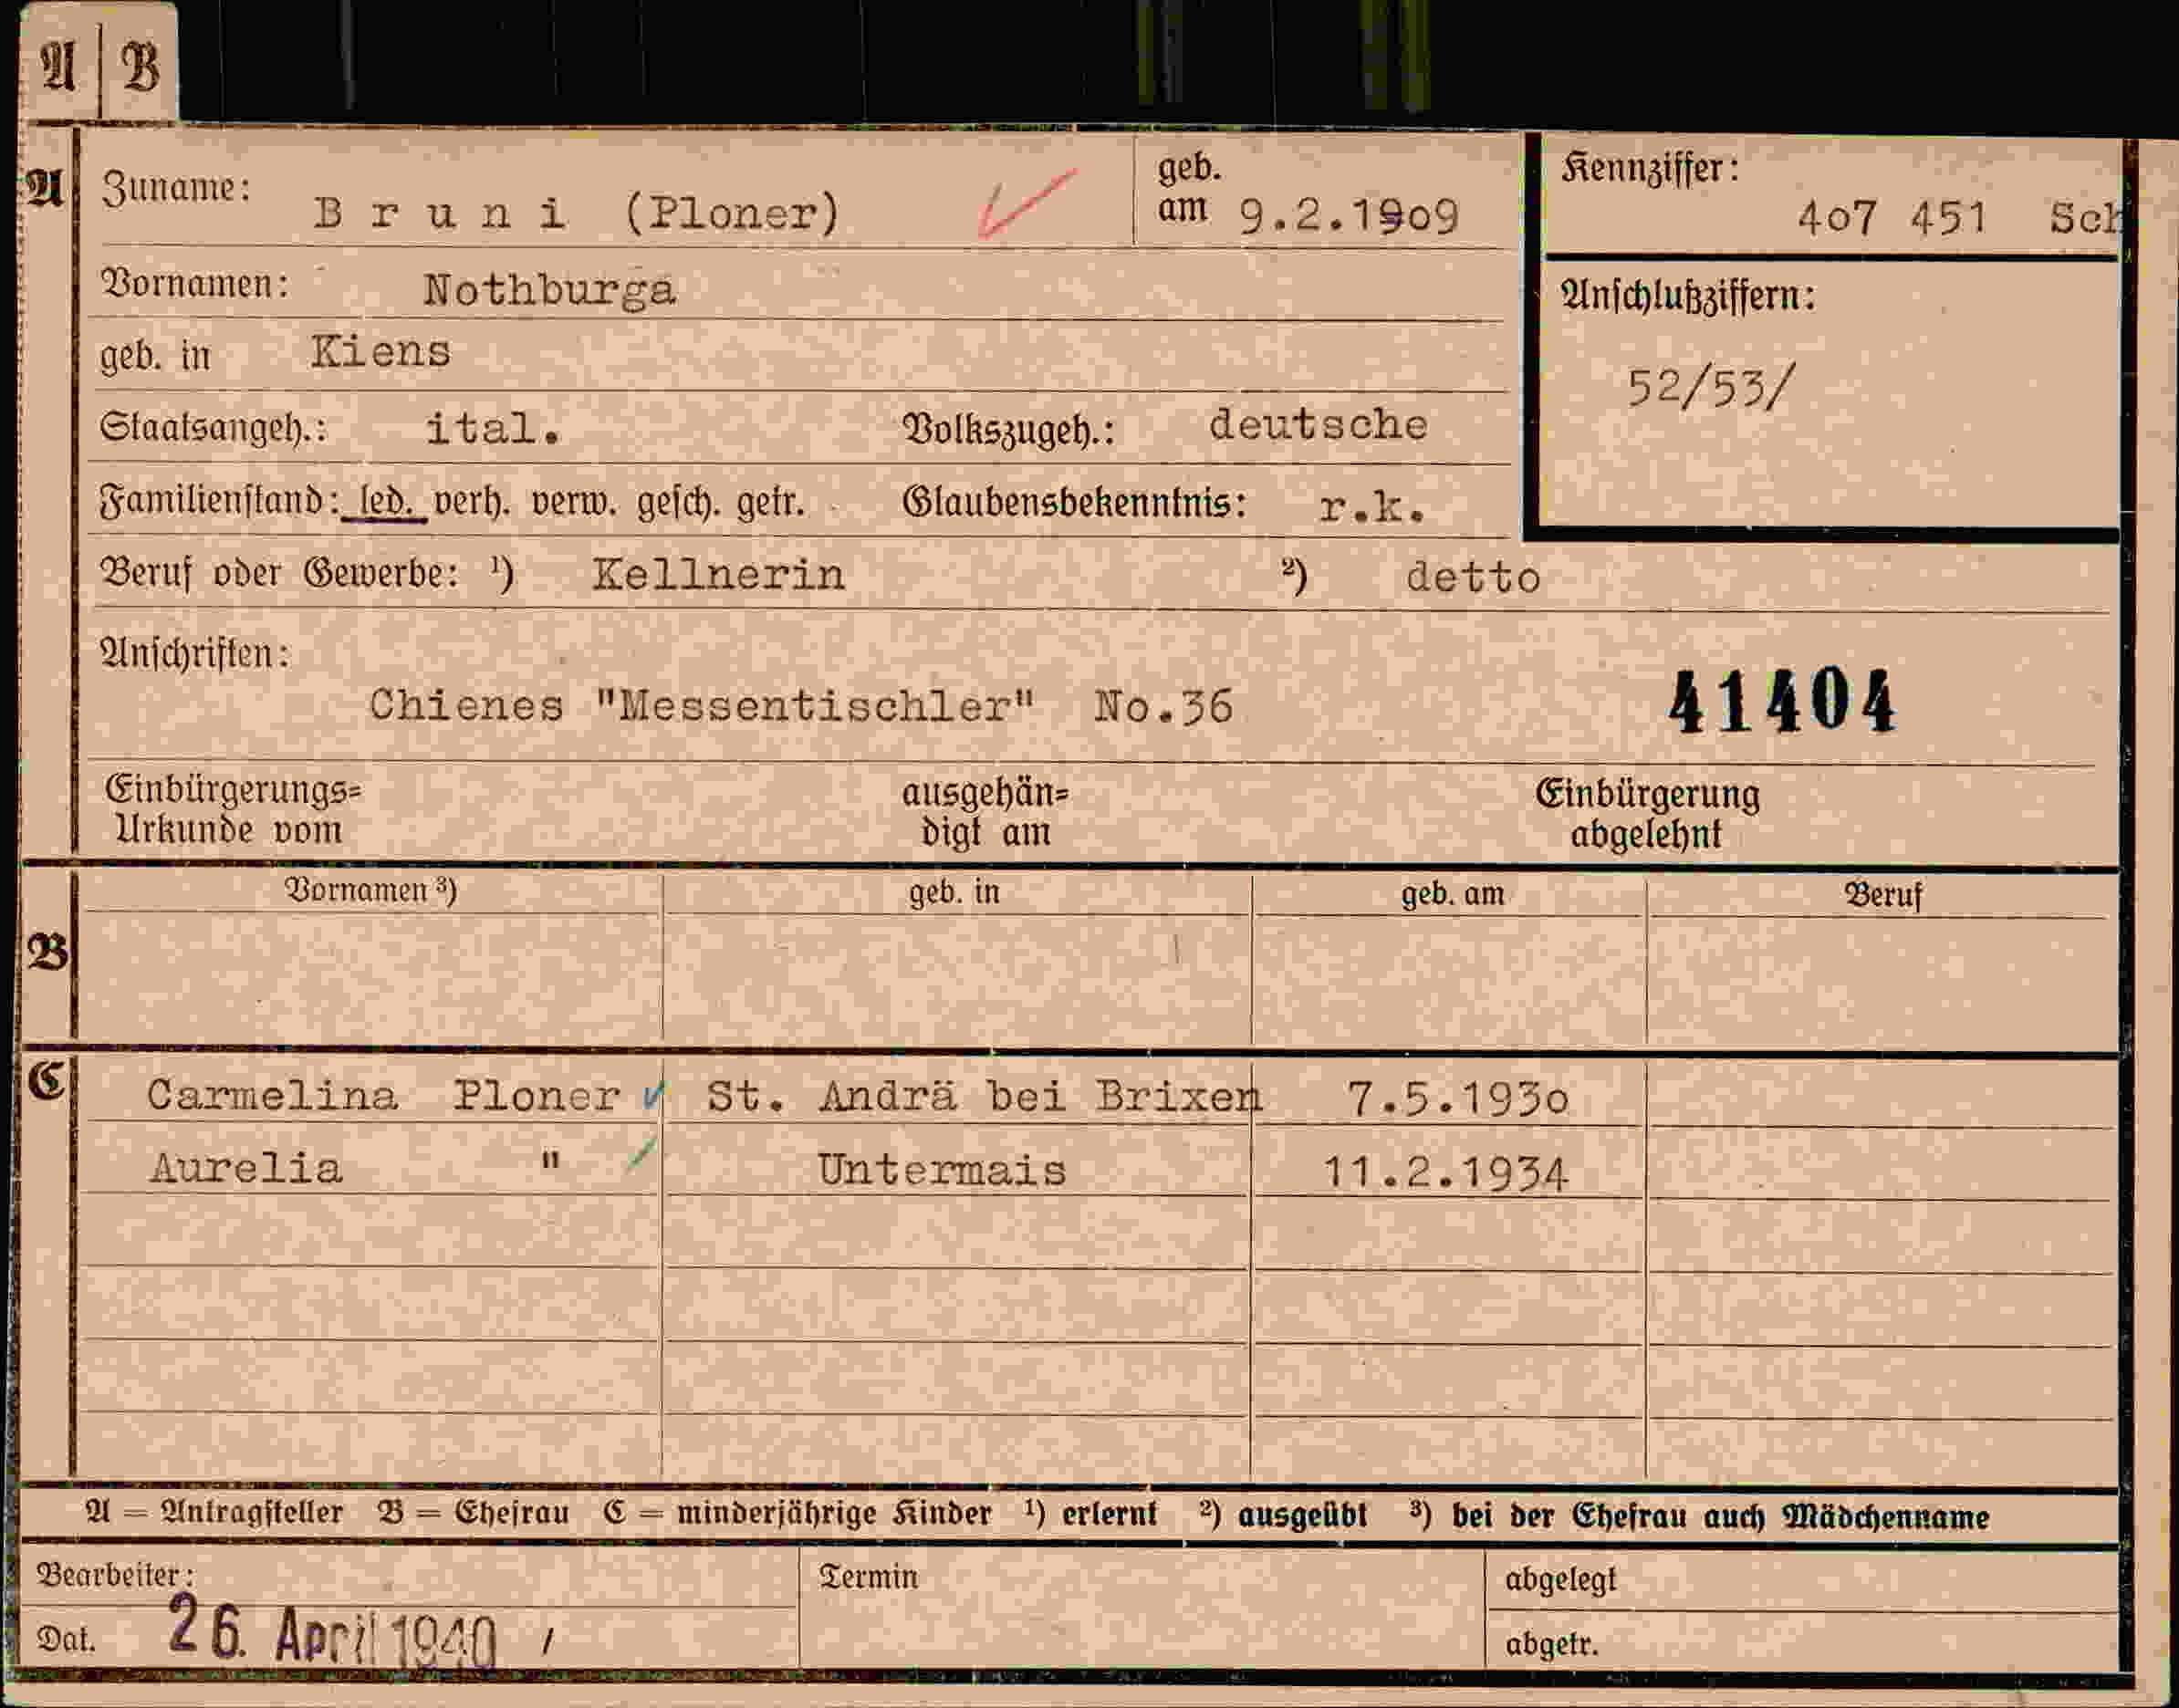 A | B
A Zuname: Bruni (Ploner) geb. am 9.2.1909
Kennziffer: 407 451 Sch
Vornamen: Nothburga
Anschlußziffern: 52/53/
geb. in Kiens
Staatsangeh.: ital. Volkszugeh.: deutsche
Familienstand: led. verh. verw. gesch. getr. Glaubensbekenntnis: r.k.
Beruf oder Gewerbe: ¹) Kellnerin ²) detto
Anschriften:
Chienes "Messentischler" No.36 41404
Einbürgerungs= ausgehän= Einbürgerung
Urkunde vom digt am abgelehnt
Vornamen ³) geb. in geb. am Beruf
B
C Carmelina Ploner St. Andrä bei Brixen 7.5.1930
Aurelia " Untermais 11.2.1934
A = Antragsteller B = Ehefrau C = minderjährige Kinder ¹) erlernt ²) ausgeübt ³) bei der Ehefrau auch Mädchenname
Bearbeiter: Termin abgelegt
Dat. 26. April 1940 / abgetr.